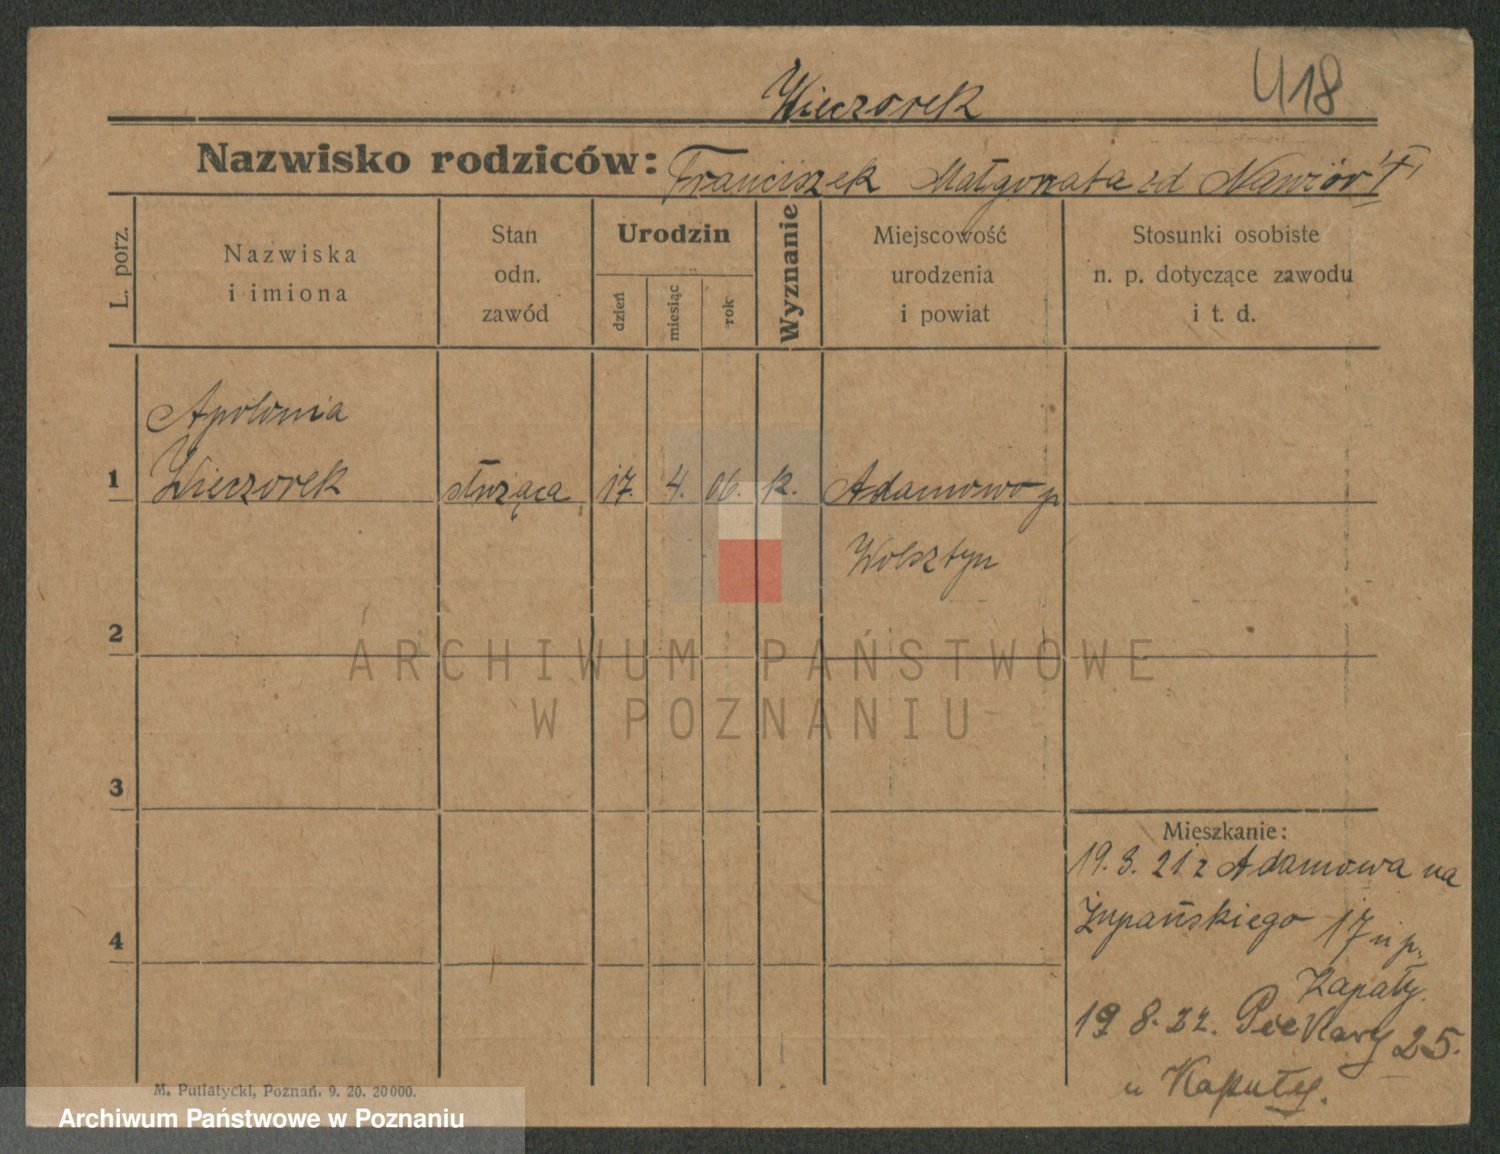 418
Wieczorek
Nazwisko rodziców: Franciszek Małgorzata zd
L. porz.
Nazwiska
i imiona
Stan
odn.
zawód
Urodzin
dzień
miesiąc
rok
Wyznanie
Miejscowość
urodzenia
i powiat
Stosunki osobiste
n. p. dotyczące zawodu
i t. d.
Apolonia
1 Wieczorek służąca 17. 4. 06. k. Adamowo p
Wolsztyn
2
ARCHIWUM PAŃSTWOWE
W POZNANIU
3
Mieszkanie:
19. 3. 21 z Adamowa na
Żupańskiego 17 u p.
4
19 8. 22. Piekary 25.
u
M. Putiatycki, Poznań. 9. 20. 20000.
Archiwum Państwowe w Poznaniu